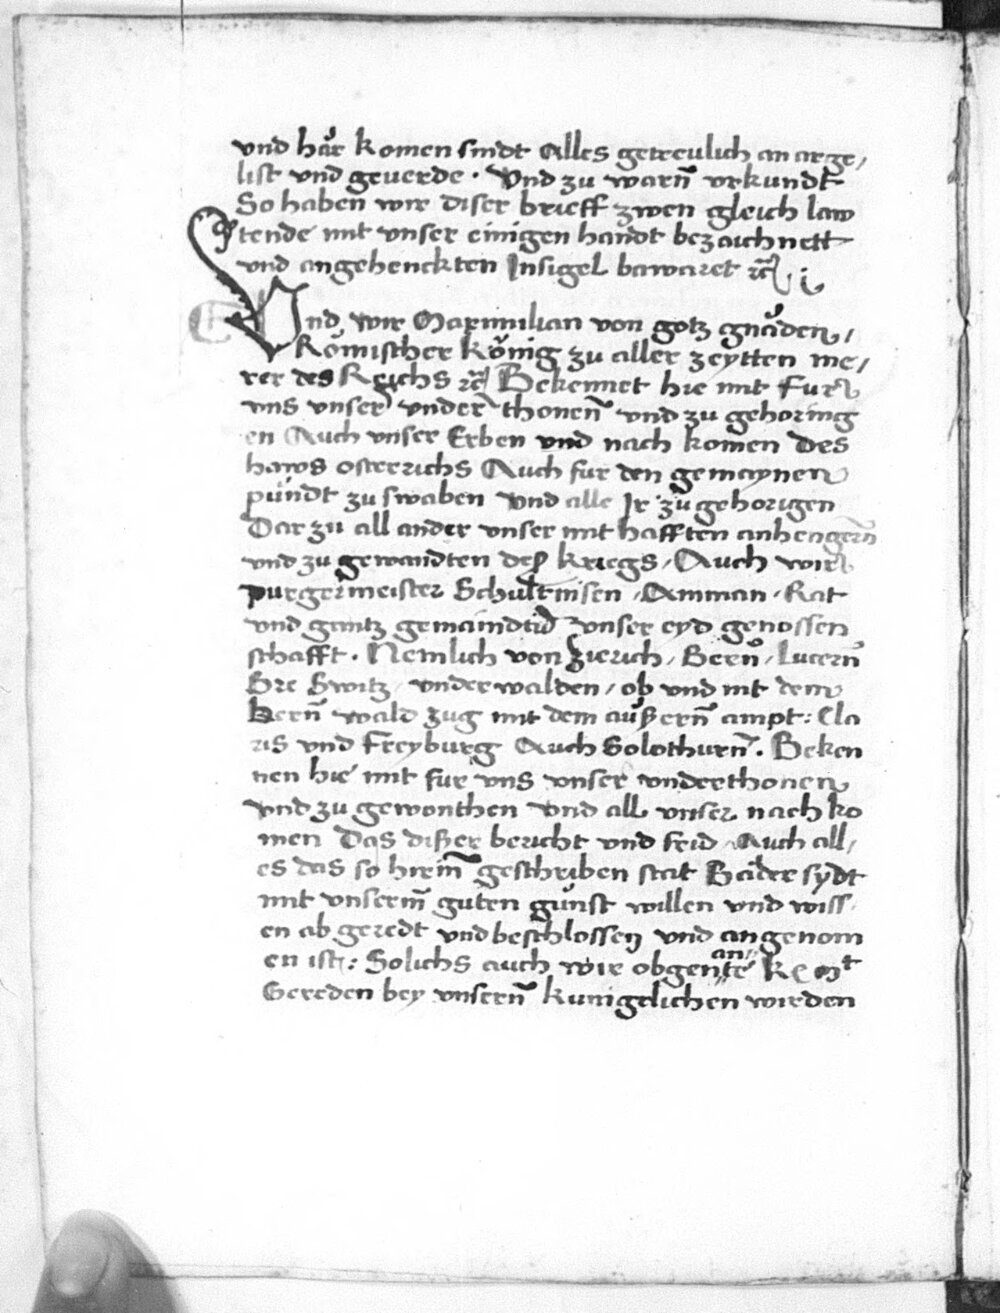 vnd här komen sindt Alles getreulich an arge,
list vnd geuerde . Vnd zu warn̄ vrkundt
So haben wir diser brieff zwen gleich law
tende mit vnser einigen handt bezaichnett
vnd angehenckten Insigel bawaret
Vnd wir Maximilian von gotz gnaden,
Römischer König zu aller zeytten me,
rer des Reichs Bekennet hie mit fur
vns vnser vnder thonen̄ vnd zu gehoring
en Auch vnser Erben vnd nach komen Des
haws osterrichs Auch fur den gemaynen
pündt zu swaben vnd alle Ir zu gehorigen
Dar zu all ander vnser mit hafften anhengern̄
vnd zu gewandten des kriegs, Auch wir
purgermeister Schulthisen, Amman, Rat
vnd gantz gemaindtid vnser eyd genossen
schafft. Nemlich von Zierich, Bern̄, Lucern̄
Bre Switz, vnderwalden, ob vnd nit dem
kern̄ wald zug mit dem außern̄ ampt: Cla
ris vnd Freyburg Auch Solothurn̄. Beken
nen hie mit fur vns vnser vnderthonen
vnd zu gewonthen vnd all vnser nach ko
men Das dißer bericht vnd frid, Auch all,
es das so hirin̄ geschriben stat Bäder sydt
mit vnserm̄ guten gunst willen vnd wiss,
en ab geredt vnd beschlossen vnd angenom
en ist: Solichs auch wir obgenante K Mt
Gereden bey vnsern̄ kunigelichen wirden